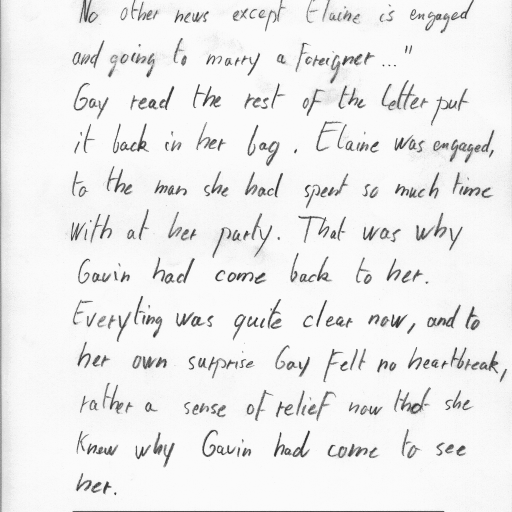 No other news except Elaine is engaged
and going to marry a foreigner..."
Gay read the rest of the letter put
it back in her bag. Elaine was engaged,
to the man she had spent so much time
with at her party. That was why
Gavin had come back to her.
Everyting was quite clear now, and to
her own surprise Gay felt no heartbreak,
rather a sense of relief now that she
knew why Gavin had come to see
her.